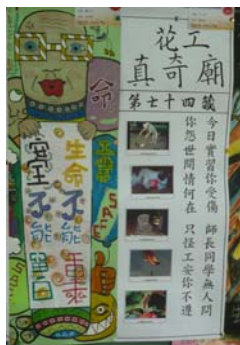 花工
真奇廟
第七十四籤
今日實習你受傷 師長同學無人問
你怨世間情何在 只怪工安你不遵
命
生命不能重
不能